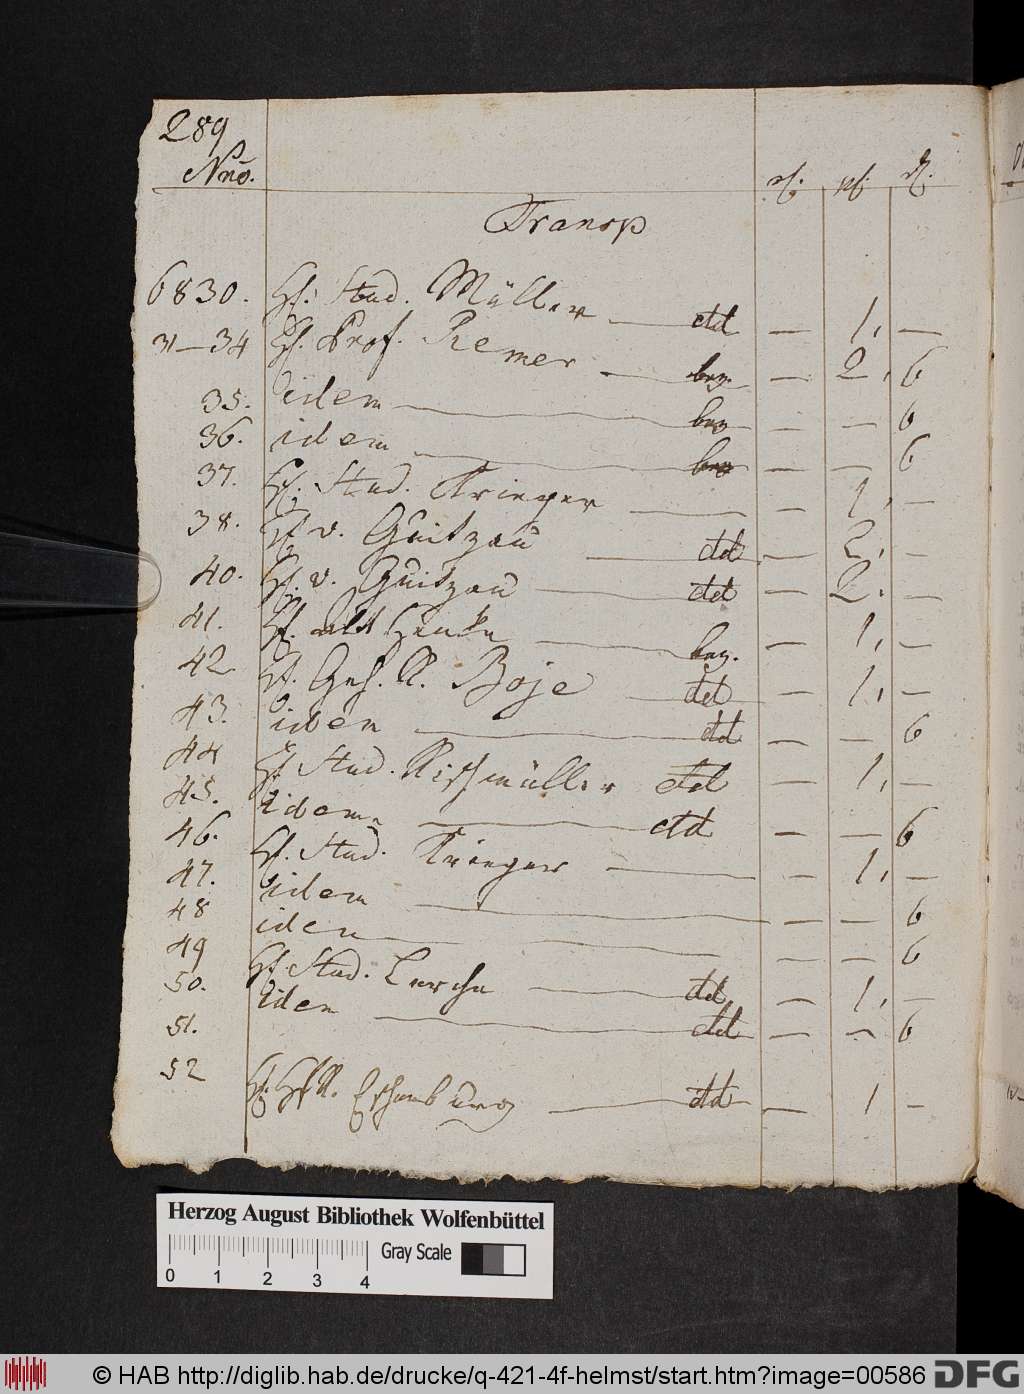 289
Nro.
rf. gl. d.
Transp
6830. H. Stud. Müller — dd — 1. —
31—34 H. Prof. Remer — bez. — 2. 6
35. idem — bez — — 6
36. idem — bez — — 6
37. H. Stud. Krieger — — 1. —
38. H. v. Quitzau — dd — 2. —
40. H. v. Quitzau — dd — 2. —
41. H. — bez. — 1. —
42 H. Geh. R. Boje — dd — 1. —
43. idem — dd — — 6
44 H. Stud. Kistmüller dd — 1. —
45. idem — dd — — 6
46. H. Stud. Krieger — — 1. —
47. idem — — — 6
48 idem — — — 6
49 H. Stud. Lerche — dd — 1. —
50. idem — dd — — 6
51.
52 H. HfR. Eschenburg — dd — 1 —
Herzog August Bibliothek Wolfenbüttel
Gray Scale
0 1 2 3 4
© HAB http://diglib.hab.de/drucke/q-421-4f-helmst/start.htm?image=00586 DFG